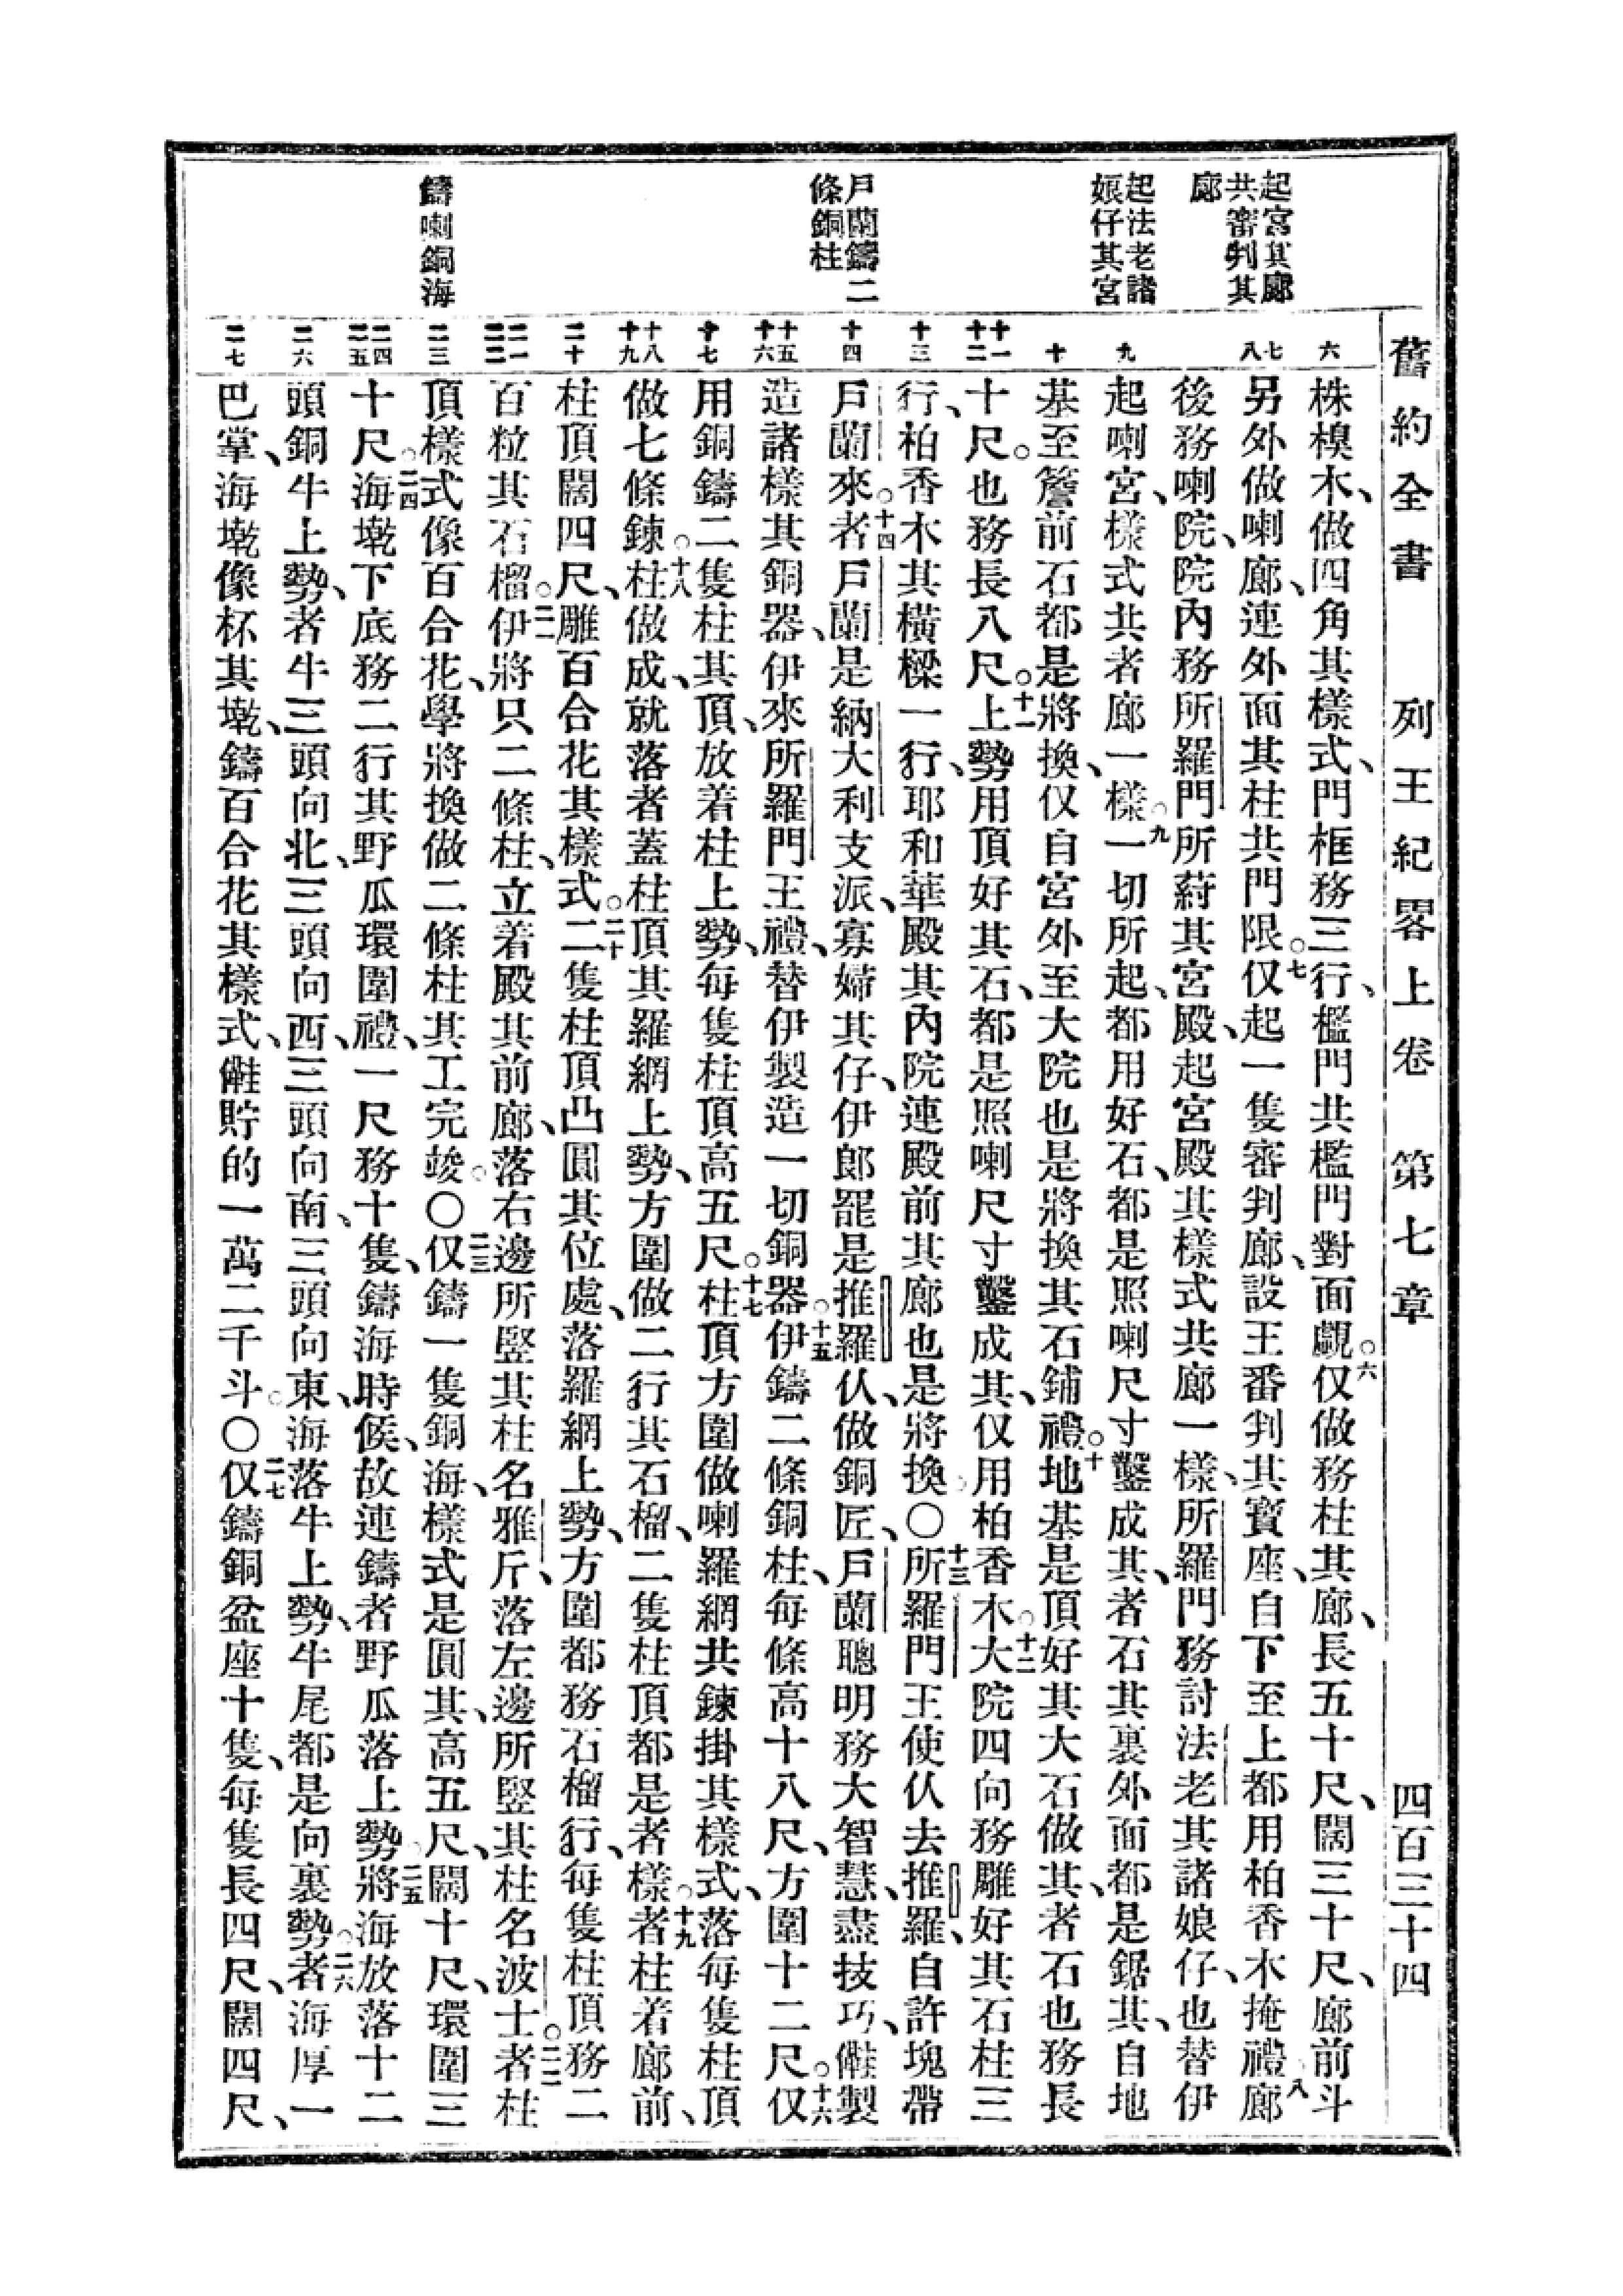 舊約全書　列王紀畧上卷　第七章　四百三十四
起宮其廊
共審判其
廊
起法老諸
娘仔其宮
戶蘭鑄二
條銅柱
鑄喇銅海
六
七
八
九
十
十一
十二
十三
十四
十五
十六
十七
十八
十九
二十
二一
二二
二三
二四
二五
二六
二七
株櫋木、做四角其樣式、門框務三行、檻門共檻門對面覷。六仅做務柱其廊、長五十尺、闊三十尺、廊前斗
另外做喇廊、連外面其柱共門限。七仅起一隻審判廊、設王審判其寶座、自下至上都用柏香木掩禮。八廊
後務喇院、院內務所羅門所蒔其宮殿、起宮殿其樣式共廊一樣、所羅門務討法老其諸娘仔、也替伊
起喇宮、樣式共者廊一樣。九一切所起、都用好石、都是照喇尺寸鑿成其、者石其裏外面都是鋸其、自地
基至簷前石都是將換、仅自宮外至大院也是將換其石鋪禮。十地基是頂好其大石做其、者石也務長
十尺。也務長八尺。十一上勢用頂好其石、都是照喇尺寸鑿成其、仅用柏香木。十二大院四向務雕好其石柱三
行、柏香木其橫樑一行、耶和華殿其內院連殿前其廊也是將換。〇十三所羅門王使仈去推羅、自許塊帶
戶蘭來。十四者戶蘭是納大利支派、寡婦其仔、伊郎罷是推羅仈、做銅匠、戶蘭聰明務大智慧、盡技巧、㒰製
造諸樣其銅器、伊來所羅門王禮、替伊製造一切銅器。十五伊鑄二條銅柱、每條高十八尺、方圍十二尺。十六仅
用銅鑄二隻柱其頂、放着柱上勢、每隻柱頂高五尺。十七柱頂方圍做喇羅網共鍊掛其樣式、落每隻柱頂
做七條鍊。十八柱做成、就落者蓋柱頂其羅網上勢、方圍做二行其石榴、二隻柱頂都是者樣。十九者柱着廊前、
柱頂闊四尺、雕百合花其樣式。二十二隻柱頂凸圓其位處、落羅網上勢、方圍都務石榴行、每隻柱頂務二
百粒其石榴。二一伊將只二條柱、立着殿其前廊、落右邊所竪其柱名雅斤、落左邊所竪其柱名波士。二二者柱
頂樣式像百合花、學將換做二條柱其工完竣。〇二三仅鑄一隻銅海、樣式是圓其、高五尺、闊十尺、環圍三
十尺。二四海墘下底務二行其野瓜環圍禮、一尺務十隻、鑄海時候、故連鑄者野瓜落上勢。二五將海放落十二
頭銅牛上勢、者牛三頭向北、三頭向西、三頭向南、三頭向東、海落牛上勢、牛尾都是向裏勢。二六者海厚一
巴掌、海墘像杯其墘、鑄百合花其樣式、㒰貯的一萬二千斗。〇二七仅鑄銅盆座十隻、每隻長四尺、闊四尺、